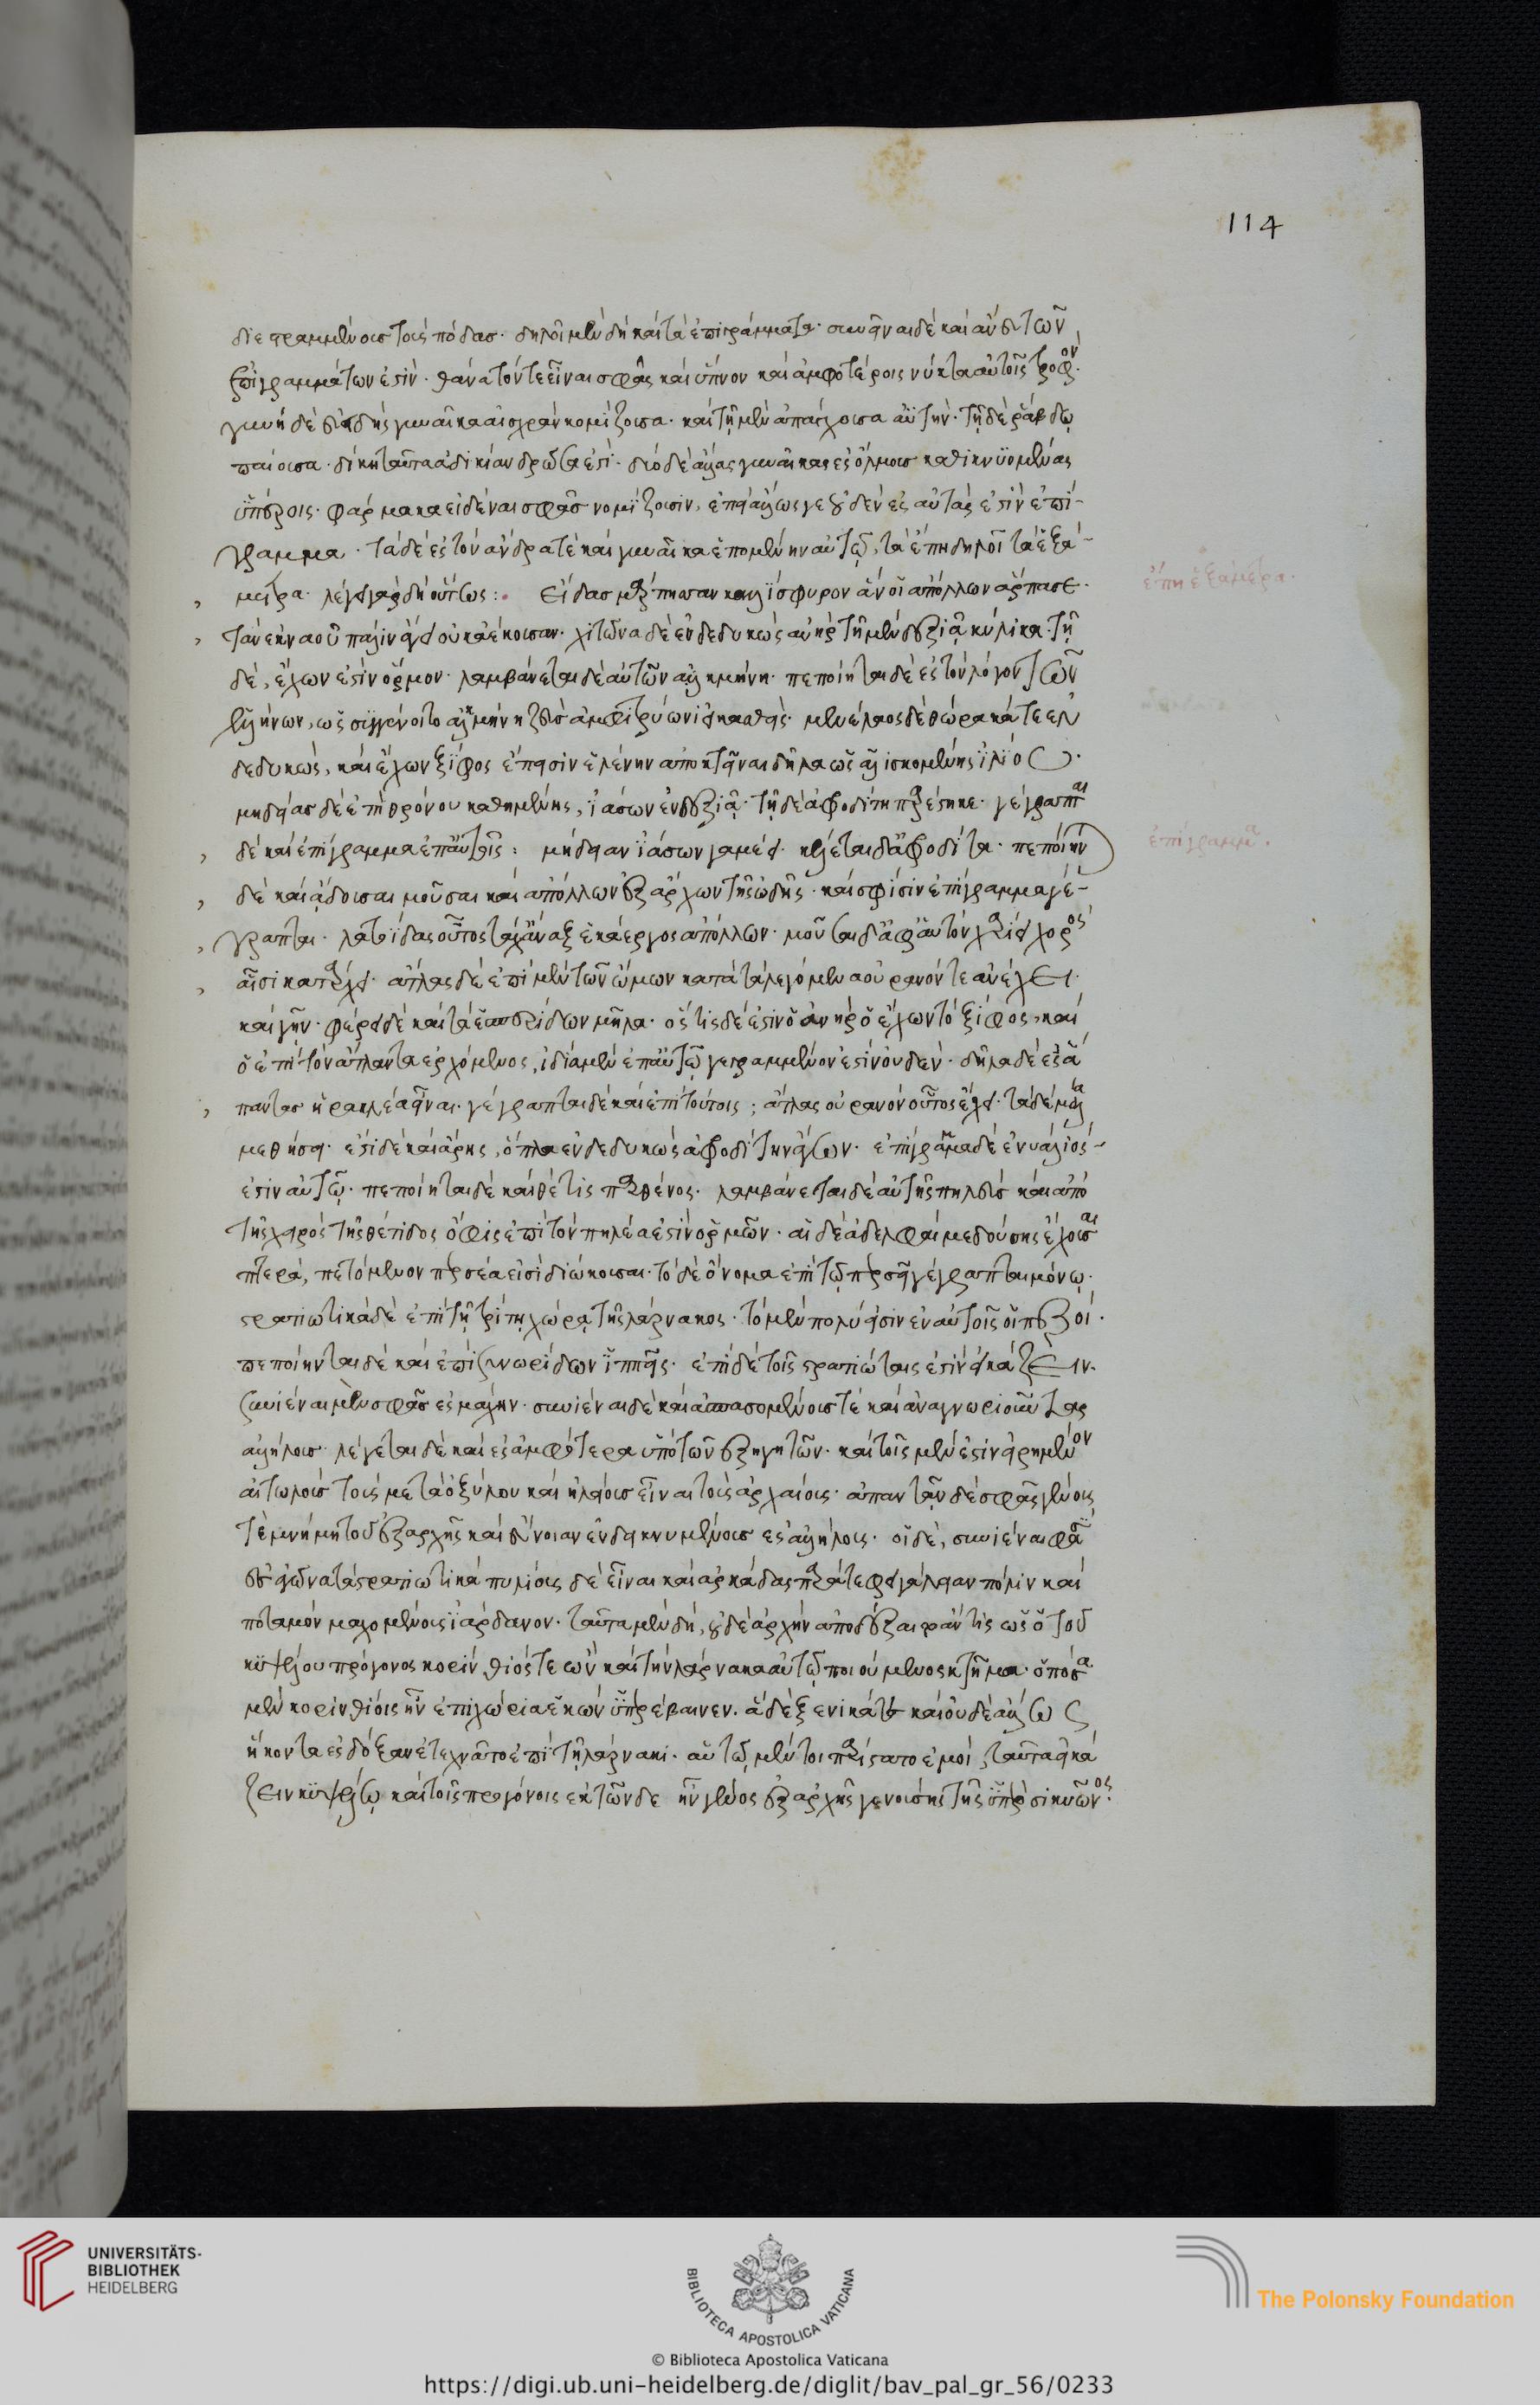 114
διεστραμμένους τοὺς πόδας· δηλοῖ μὲν δὴ καὶ τὰ ἐπιγράμματα· συνεῖναι δὲ καὶ ἄνευ τῶν
ἐπιγραμμάτων ἐστὶν· θάνατόν τε εἶναι σφᾶς καὶ ὕπνον καὶ ἀμφοτέροις νύκτα αὐτοῖς τροφόν·
γυνὴ δὲ εὐειδὴς γυναῖκα αἰσχρὰν κομίζουσα· καὶ τῇ μὲν ἀπάγχουσα αὐτήν· τῇ δὲ ῥάβδῳ
παίουσα· δίκη ταῦτα ἀδικίαν δρῶσα ἐστί· δύο δὲ ἄλλας γυναῖκας ἐς ὅλμους καθικνουμένας
ὑπέροις· φάρμακα εἰδέναι σφᾶς νομίζουσιν, ἐπεὶ ἄλλως γε οὐδὲν ἐς αὐτάς ἐστὶν ἐπί-
γραμμα· τὰ δὲ ἐς τὸν ἄνδρα τὲ καὶ γυναῖκα ἑπομένην αὐτῷ, τὰ ἔπη δηλοῖ τὰ ἑξά-
μετρα· λέγει γὰρ δὴ οὕτως: Εἴδας μάρπησαν καλλίσφυρον ἅν οἱ ἀπόλλων ἅρπασε·
τὰν ἐκ ναοῦ πάλιν ἄγει οὐκ ἀέκουσαν· χιτῶνα δὲ ἐνδεδυκὼς ἀνὴρ τῇ μὲν δεξιᾷ κύλικα· τῇ
δὲ, ἔχων ἐστὶν ὅρμον· λαμβάνεται δὲ αὐτῶν ἀλκμήνη· πεποίηται δὲ ἐς τὸν λόγον τῶν
ἑλλήνων, ὡς συγγένοιτο ἀλκμήνη ζεὺς ἀμφιτρύωνι εἰκασθείς· μενέλαος δὲ θώρακά τε ἐν
δεδυκὼς, καὶ ἔχων ξίφος ἔπεισιν ἑλένην ἀποκτεῖναι δῆλα ὡς ἁλισκομένης ἰλίου·
μηδείας δὲ ἐπὶ θρόνου καθημένης, ἰάσων ἐν δεξιᾷ· τῇ δὲ ἀφροδίτη παρέστηκε· γέγραπται
δὲ καὶ ἐπίγραμμα ἐπ' αὐτοῖς: μήδειαν ἰάσων γαμέει· κέλεται δ' ἀφροδίτα· πεποίην
δὲ καὶ ᾄδουσαι μοῦσαι καὶ ἀπόλλων ἐξάρχων τῆς ᾠδῆς· καὶ σφίσιν ἐπίγραμμα γέ-
γραπται· λατοΐδας οὗτος τάχ' ἄναξ ἑκάεργος ἀπόλλων· μοῦσαι δ' ἀμφ' αὐτὸν χαρίει χορὸς
αἷσι κατάρχει· ἄτλας δὲ ἐπὶ μὲν τῶν ὤμων κατὰ τὰ λεγόμενα οὐρανόν τε ἀνέχει·
καὶ γῆν· φέρει δὲ καὶ τὰ ἑσπερίδων μῆλα· ὅστις δέ ἐστιν ὁ ἀνὴρ ὁ ἔχων τὸ ξίφος, καὶ
ὁ ἐπὶ τὸν ἄτλαντα ἐρχόμενος, ἰδίᾳ μὲν ἐπ' αὐτῷ γεγραμμένον ἐστὶν οὐδὲν· δῆλα δὲ ἐς ἅ
παντας ἡρακλέα εἶναι· γέγραπται δὲ καὶ ἐπὶ τούτοις; ἄτλας οὐρανὸν οὗτος ἔχει· τὰ δὲ μᾶλα
μεθήσει· ἔστι δὲ καὶ ἄρης, ὅπλα ἐνδεδυκὼς ἀφροδίτην ἄγων· ἐπίγραμμα δὲ ἐνυάλιός-
ἐστιν αὐτῷ· πεποίηται δὲ καὶ θέτις παρθένος· λαμβάνεται δὲ αὐτῆς πηλεὺς καὶ ἀπὸ
τῆς χειρὸς τῆς θέτιδος ὄφις ἐπὶ τὸν πηλέα ἐστὶν ὁρμῶν· αἱ δὲ ἀδελφαὶ μεδούσης ἔχουσαι
πτερά, πετόμενον περσέα εἰσὶ διώκουσαι· τὸ δὲ ὄνομα ἐπὶ τῷ περσεῖ γέγραπται μόνῳ·
στρατιωτικὰ δὲ ἐπὶ τῇ τρίτῃ χώρᾳ τῆς λάρνακος· τὸ μὲν πολὺ εἰσιν ἐν αὐτοῖς οἱ πεζοί·
πεποίηνται δὲ καὶ ἐπὶ συνωρίδων ἱππεῖς· ἐπὶ δὲ τοῖς στρατιώταις ἐστὶν εἰκάζειν·
συνιέναι μὲν σφᾶς ἐς μάχην· συνιέναι δὲ καὶ ἀσπασομένους τὲ καὶ ἀναγνωριοῦντας
ἀλλήλους· λέγεται δὲ καὶ ἐς ἀμφότερα ὑπὸ τῶν ἐξηγητῶν· καὶ τοῖς μέν ἐστιν εἰρημένον
αἰτωλοὺς τοὺς μετὰ ὀξύλου καὶ ἠλείους εἶναι τοὺς ἀρχαίους· ἀπαντᾶν δὲ σφᾶς γένους
τὲ μνήμῃ τοῦ ἐξαρχῆς καὶ εὔνοιαν ἐνδεικνυμένους ἐς ἀλλήλους· οἱ δὲ, συνιέναι φασὶν
ἐς ἀγῶνα τὰ στρατιωτικὰ πυλίους δὲ εἶναι καὶ ἀρκάδας παρά τε φειγάλειαν πόλιν καὶ
ποταμὸν μαχομένους ἰάρδανον· ταῦτα μὲν δὴ, οὐδὲ ἀρχὴν ἀποδέξαι φάν τις ὡς ὁ τοῦ
κυψέλου πρόγονος κορίνθιός τε ὢν καὶ τὴν λάρνακα αὐτῷ ποιούμενος κτῆμα· ὁπόσα
μὲν κορινθίοις ἦν ἐπιχώρια ἑκὼν ὑπερέβαινεν. ἃ δὲ ξενικά τε καὶ οὐδὲ ἄλλως
ἥκοντα ἐς δόξαν ἐτεχνᾶτο ἐπὶ τῇ λάρνακι· αὐτῷ μέντοι παρίστατο ἐμοὶ, ταῦτα εἰκά
ζειν κυψέλῳ καὶ τοῖς προγόνοις ἐκ τῶνδε ἦν γένος ἐξ ἀρχῆς γενούσης τῆς ὑπὲρ σικυῶνος·
ἔπη ἑξάμετρα·
ἐπίγραμμα.
UNIVERSITÄTS-
BIBLIOTHEK
HEIDELBERG
BIBLIOTECA APOSTOLICA VATICANA
The Polonsky Foundation
© Biblioteca Apostolica Vaticana
https://digi.ub.uni-heidelberg.de/diglit/bav_pal_gr_56/0233